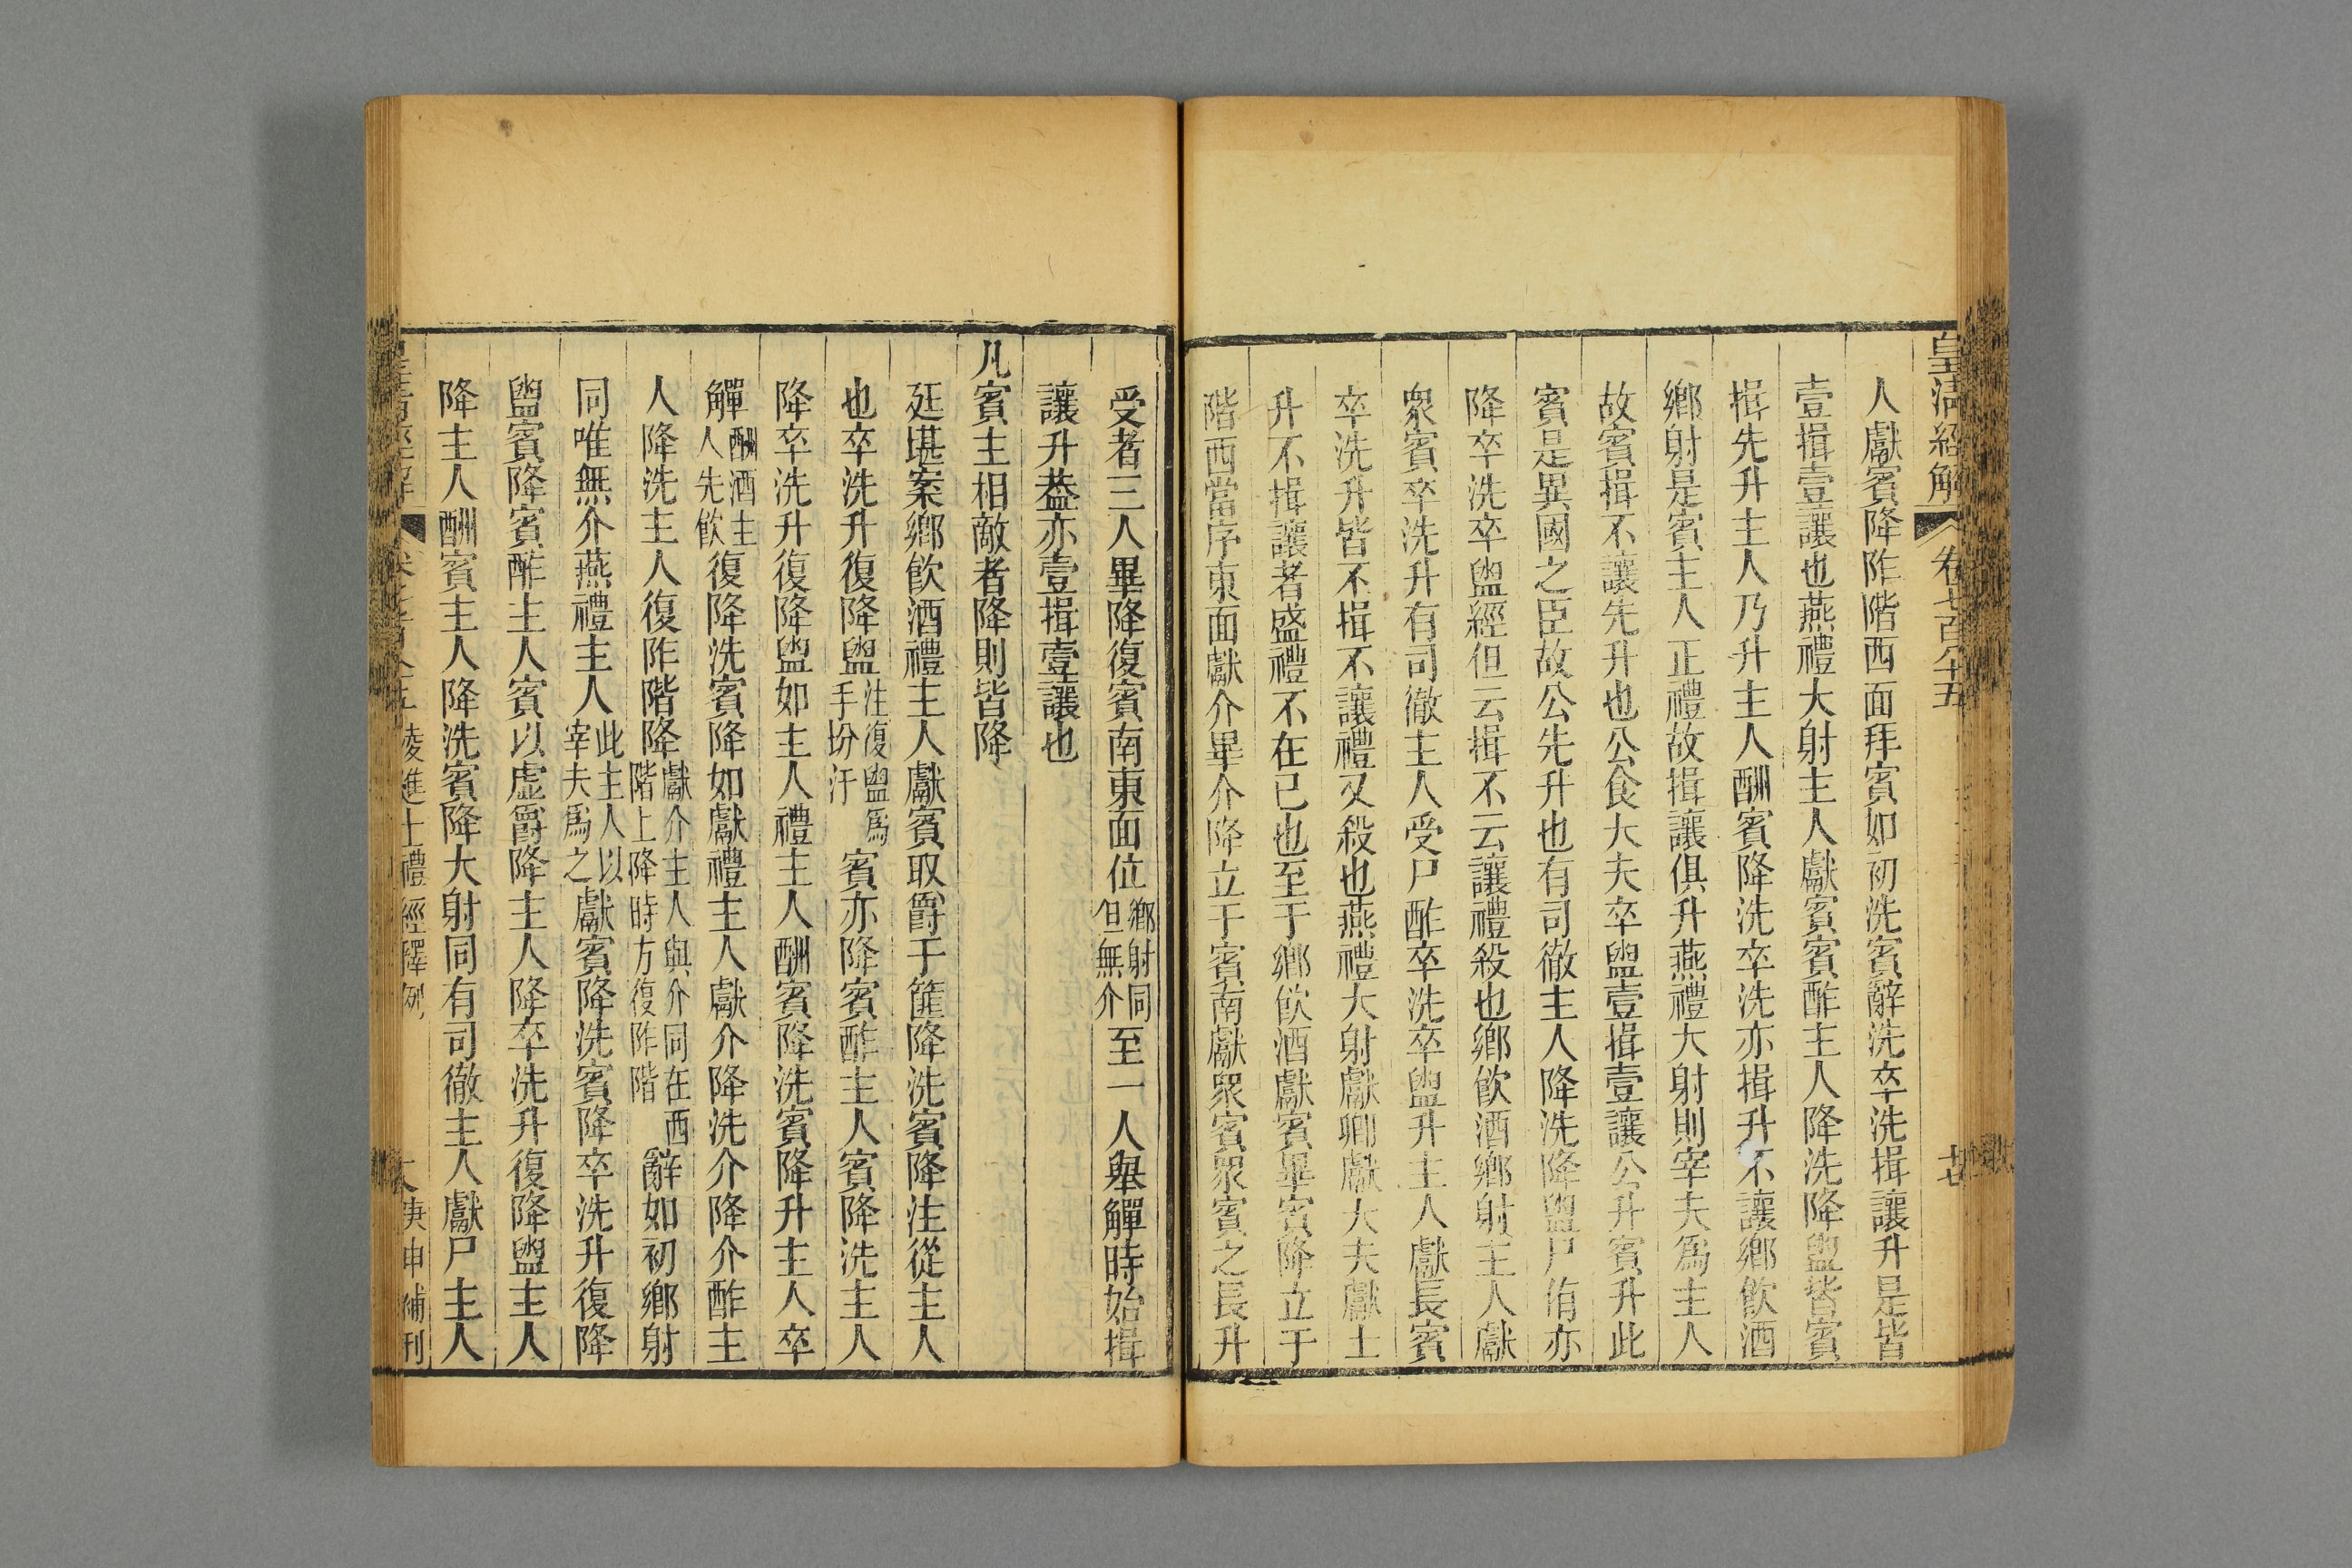 皇清經解 卷七百八十五
人獻賓降阼階西面拜賓如初洗賓辭洗卒洗揖讓升是皆
壹揖壹讓也燕禮大射主人獻賓賓酢主人降洗降盥皆賓
揖先升主人乃升主人酬賓降洗卒洗亦揖升不讓鄉飲酒
鄉射是賓主人正禮故揖讓俱升燕禮大射則宰夫爲主人
故賓揖不讓先升也公食大夫卒盥壹揖壹讓公升賓升此
賓是異國之臣故公先升也有司徹主人降洗降盥尸侑亦
降卒洗卒盥經但云揖不云讓禮殺也鄉飲酒鄉射主人獻
衆賓卒洗升有司徹主人受尸酢卒洗卒盥升主人獻長賓
卒洗升皆不揖不讓禮又殺也燕禮大射獻卿獻大夫獻士
升不揖讓者盛禮不在已也至于鄉飲酒獻賓畢賓降立于
階西當序東面獻介畢介降立于賓南獻衆賓衆賓之長升
受者三人畢降復賓南東面位鄉射同但無介至一人舉觶時始揖
讓升葢亦壹揖壹讓也
凡賓主相敵者降則皆降
廷堪案鄉飲酒禮主人獻賓取爵于篚降洗賓降注從主人
也卒洗升復降盥注復盥爲手坋汙賓亦降賓酢主人賓降洗主人
降卒洗升復降盥如主人禮主人酬賓降洗賓降升主人卒
觶酬酒主人先飲復降洗賓降如獻禮主人獻介降洗介降介酢主
人降洗主人復阼階降獻介主人與介同在西階上降時方復阼階辭如初鄉射
同唯無介燕禮主人此主人以宰夫爲之獻賓降洗賓降卒洗升復降
盥賓降賓酢主人賓以虛爵降主人降卒洗升復降盥主人
降主人酬賓主人降洗賓降大射同有司徹主人獻尸主人
凌進士禮經釋例 庚申補刊